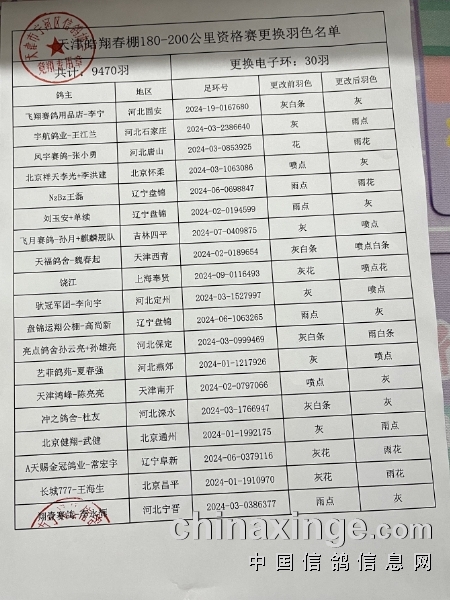 天津皓翔春棚180-200公里资格赛更换羽色名单
共计：9470羽 更换电子环：30羽
鸽主 地区 足环号 更改前羽色 更改后羽色
飞翔赛鸽用品店-李宁 河北固安 2024-19-0167680 灰白条 灰
宇航鸽业-王江兰 河北石家庄 2024-03-2386640 灰 雨点
风宇赛鸽-张小勇 河北唐山 2024-03-0853925 花 雨花
北京祥天李光+李洪建 北京怀柔 2024-03-1063086 喷点 灰
NzBz王磊 辽宁盘锦 2024-06-0698847 雨点 雨花
刘玉安+单续 辽宁盘锦 2024-02-0194599 雨点 灰
飞月赛鸽-孙月+麒麟舰队 吉林四平 2024-07-0409875 灰 喷点
天福鸽舍-魏春起 天津西青 2024-02-0189654 灰白条 喷点白条
饶江 上海奉贤 2024-09-0116493 灰花 喷点花
驮冠军团-李向宇 河北定州 2024-03-1527997 灰 喷点
盘锦运翔公棚-高尚新 辽宁盘锦 2024-06-1063265 雨点 灰
亮点鸽舍孙云亮+孙雄亮 河北保定 2024-03-0999469 灰白条 雨白条
艺菲鸽苑-夏春强 河北燕郊 2024-01-1217926 灰 喷点
天津鸿峰-陈亮亮 天津南开 2024-02-0797066 喷点 灰
冲之鸽舍-杜友 河北涞水 2024-03-1766947 灰白条 灰
北京健翔-武健 北京通州 2024-01-1992175 灰 雨点
A天赐金冠鸽业-常宏宇 辽宁阜新 2024-06-0379116 灰花 雨花
长城777-王海生 北京昌平 2024-01-1910970 灰花 雨花
河北宁晋 2024-03-0386377 雨点 灰
chinaxinge.com
中国信鸽信息网